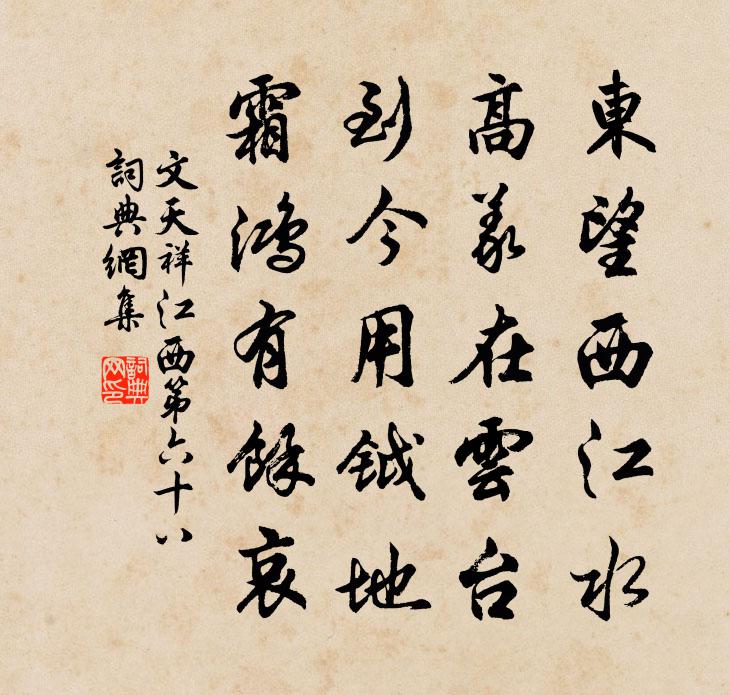 東望西江水
高義在雲台
到今用鉞地
霜鴻有餘哀
文天祥江西第六十八
詞典網集
詞典網印